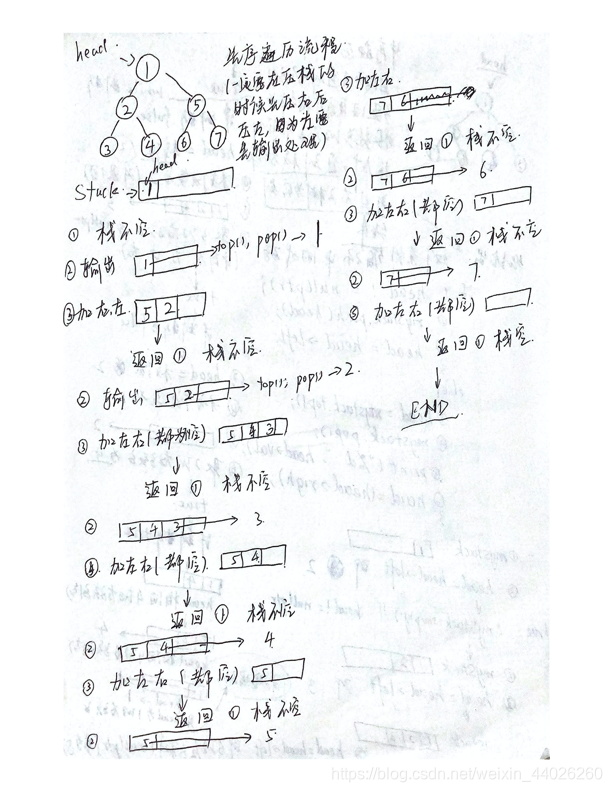 head.
1
2
5
3
4
6
7
先序遍历流程.
(一定要在压栈的
时候先压右后
压左, 因为左要
先输出处理)
head
Stack
1
① 栈不空.
② 输出
1
top(), pop() → 1
③ 加右, 左
5 2
返回① 栈不空.
② 输出
5 2
top(), pop() → 2.
③ 加左右
5 4 3
返回① 栈不空
②
5 4 3
3.
加左右(都空).
5 4
返回① 栈不空
②
5 4
4.
③ 加左右(都空)
5
返回① 栈不空
②
5
5.
③ 加左右.
7 6
返回① 栈不空.
②
7 6
6.
③ 加左右(都空)
7
返回① 栈不空
②
7
7.
③ 加左右(都空)
返回① 栈空.
END
https://blog.csdn.net/weixin_44026260